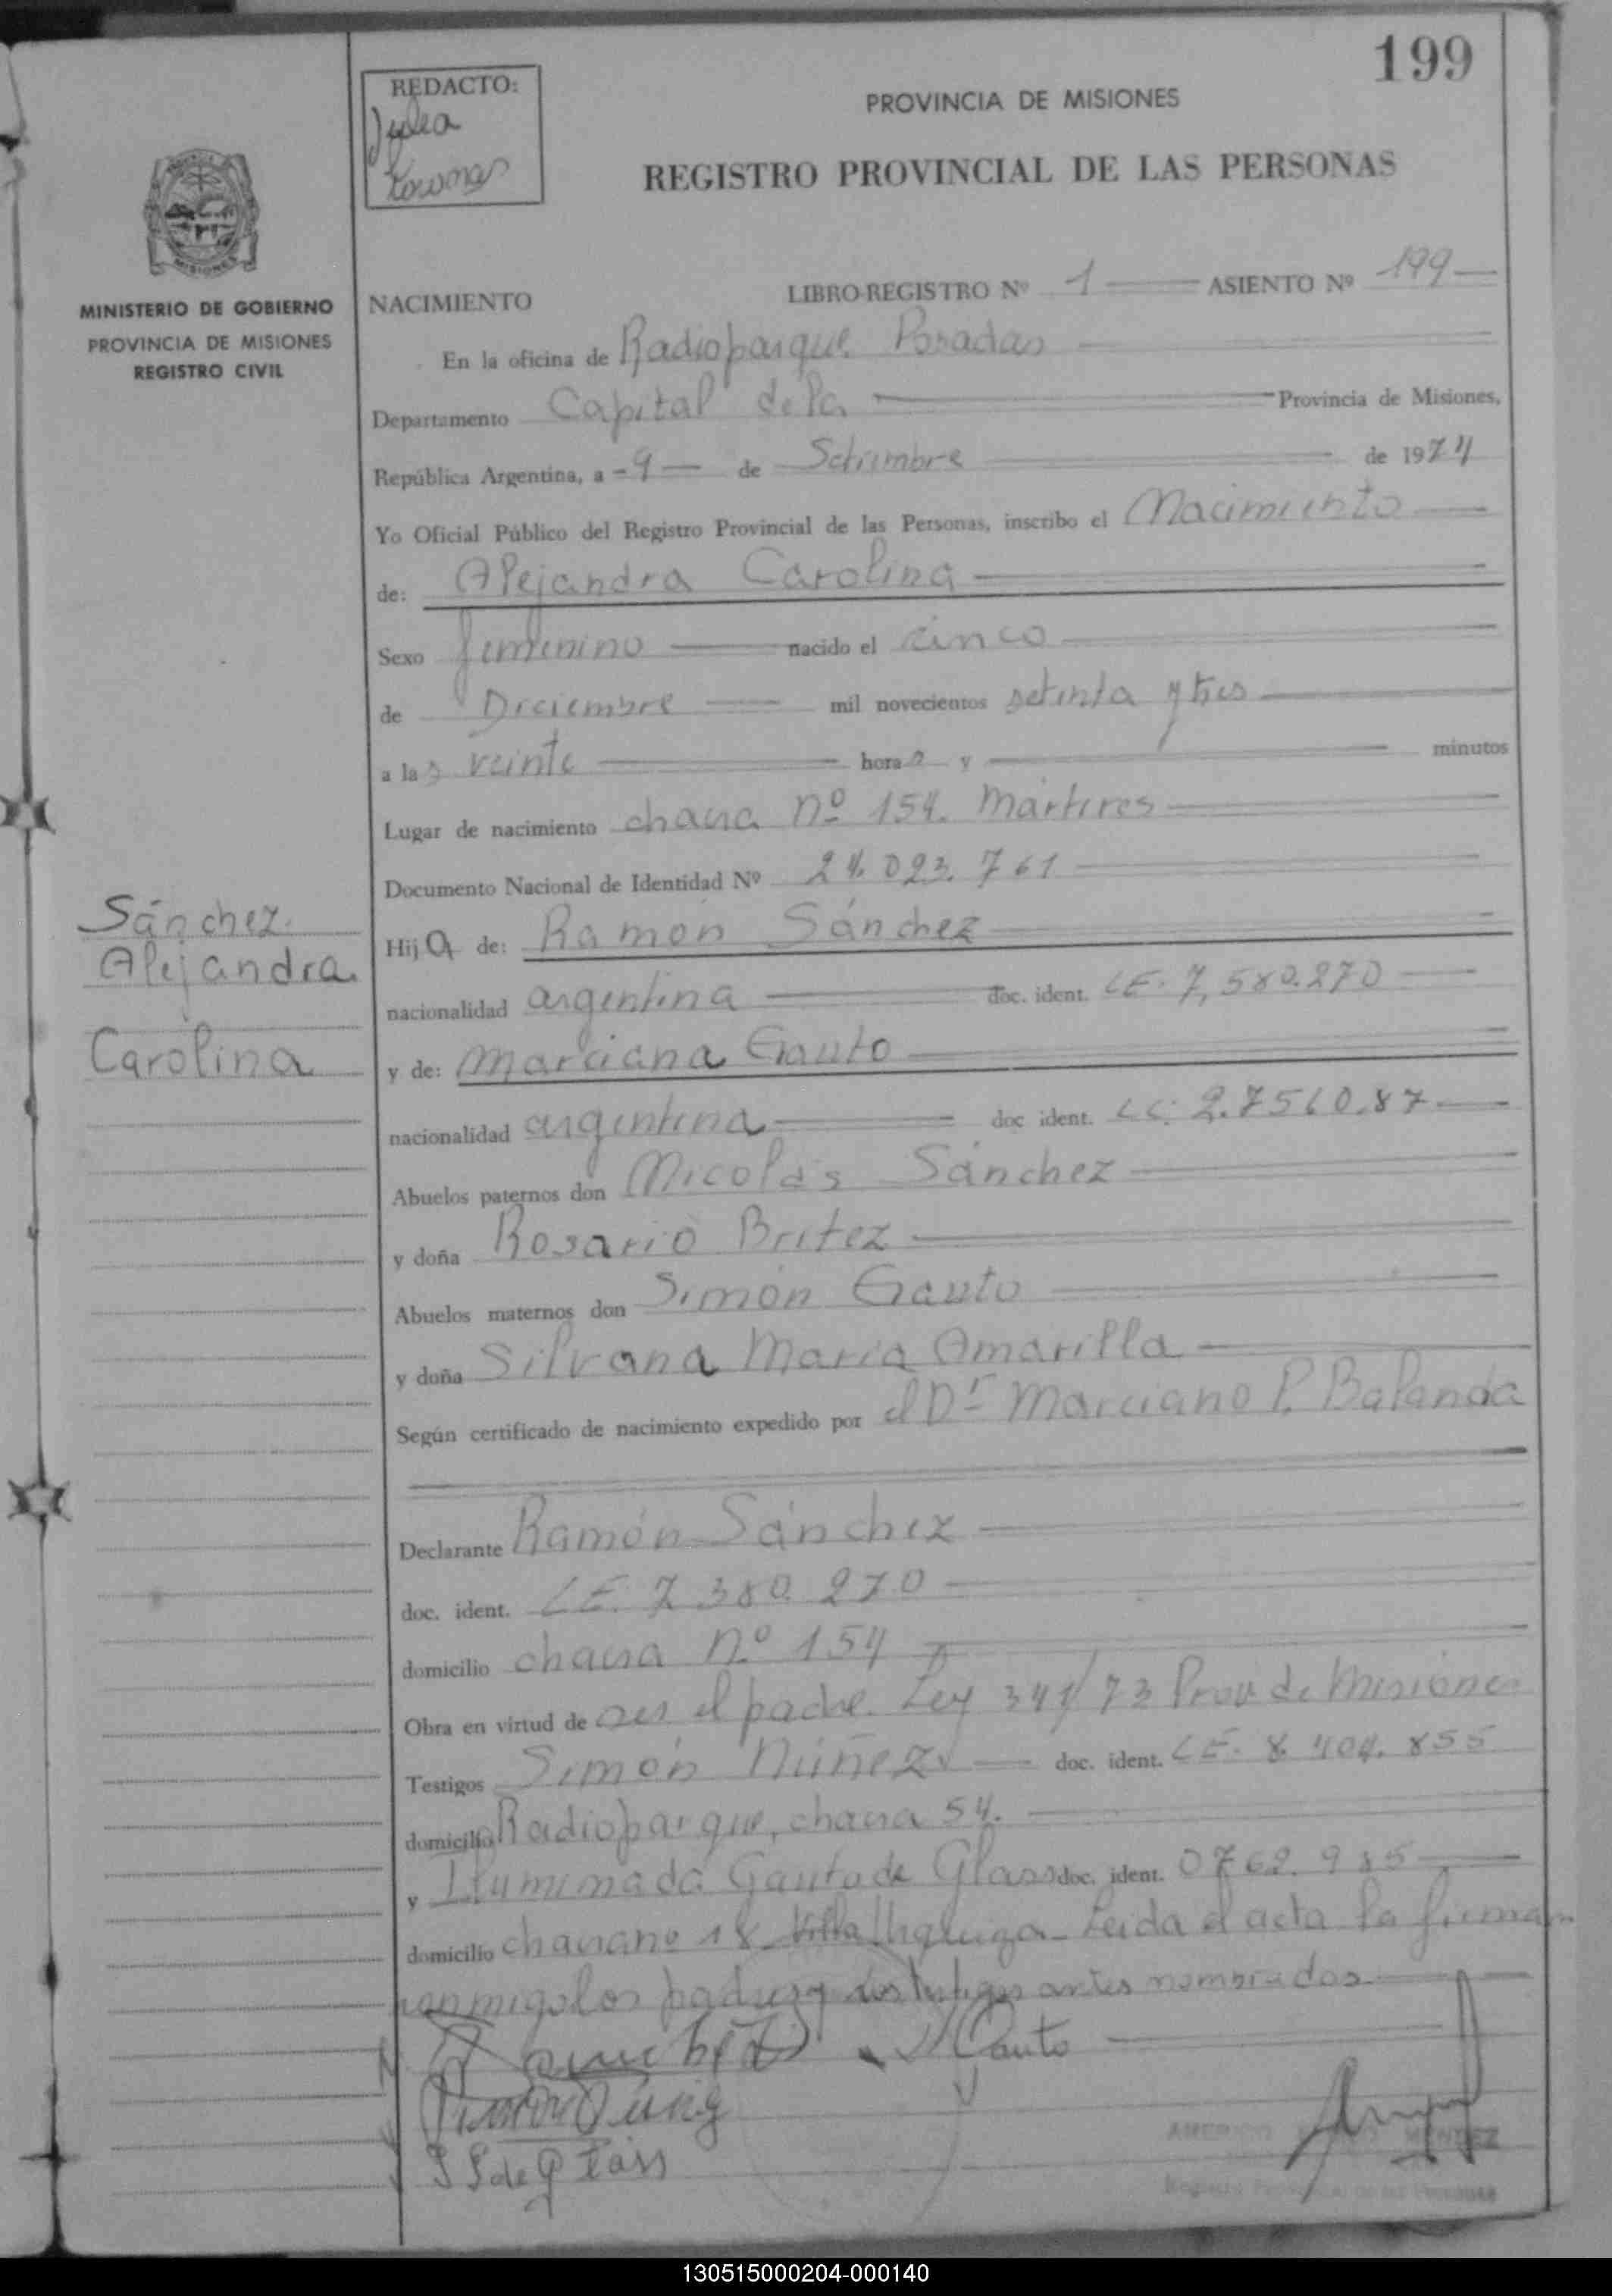 199
REDACTO:
PROVINCIA DE MISIONES
REGISTRO PROVINCIAL DE LAS PERSONAS
MISIONES
MINISTERIO DE GOBIERNO
PROVINCIA DE MISIONES
REGISTRO CIVIL
NACIMIENTO LIBRO-REGISTRO Nº 1 ASIENTO Nº 199
En la oficina de Radioparque Posadas
Departamento Capital de la Provincia de Misiones,
República Argentina, a - 9 - de Setiembre de 1974
Yo Oficial Público del Registro Provincial de las Personas, inscribo el Nacimiento
de: Alejandra Carolina
Sexo femenino nacido el cinco
de Diciembre mil novecientos setenta y tres
a las veinte horas y minutos
Lugar de nacimiento chacra nº 154. Mártires
Documento Nacional de Identidad Nº 24.023.761
Sánchez
Alejandra
Carolina
Hija de: Ramón Sánchez
nacionalidad argentina doc. ident. LE. 7,580.270
y de: Marciana Gauto
nacionalidad argentina doc ident. LC. 2.7560.87
Abuelos paternos don Nicolás Sánchez
y doña Rosario Britez
Abuelos maternos don Simón Gauto
y doña Silvana María Amarilla
Según certificado de nacimiento expedido por el Dr Marciano P. Balanda
Declarante Ramón Sánchez
doc. ident. LE. 7.380.270
domicilio chacra nº 154
Obra en virtud de ser el padre. Ley 341/73 Prov de Misiones
Testigos Simón Núñez doc. ident. LE. 8.404.855
domicilio Radioparque, chacra 54.
y Iluminada Gauto de Glass doc. ident. 0762.985
domicilio chacra nº 18 Villa Leida el acta la firman
conmigo los padres y los testigos antes nombrados
Sanchez Gauto
MENDEZ
130515000204-000140